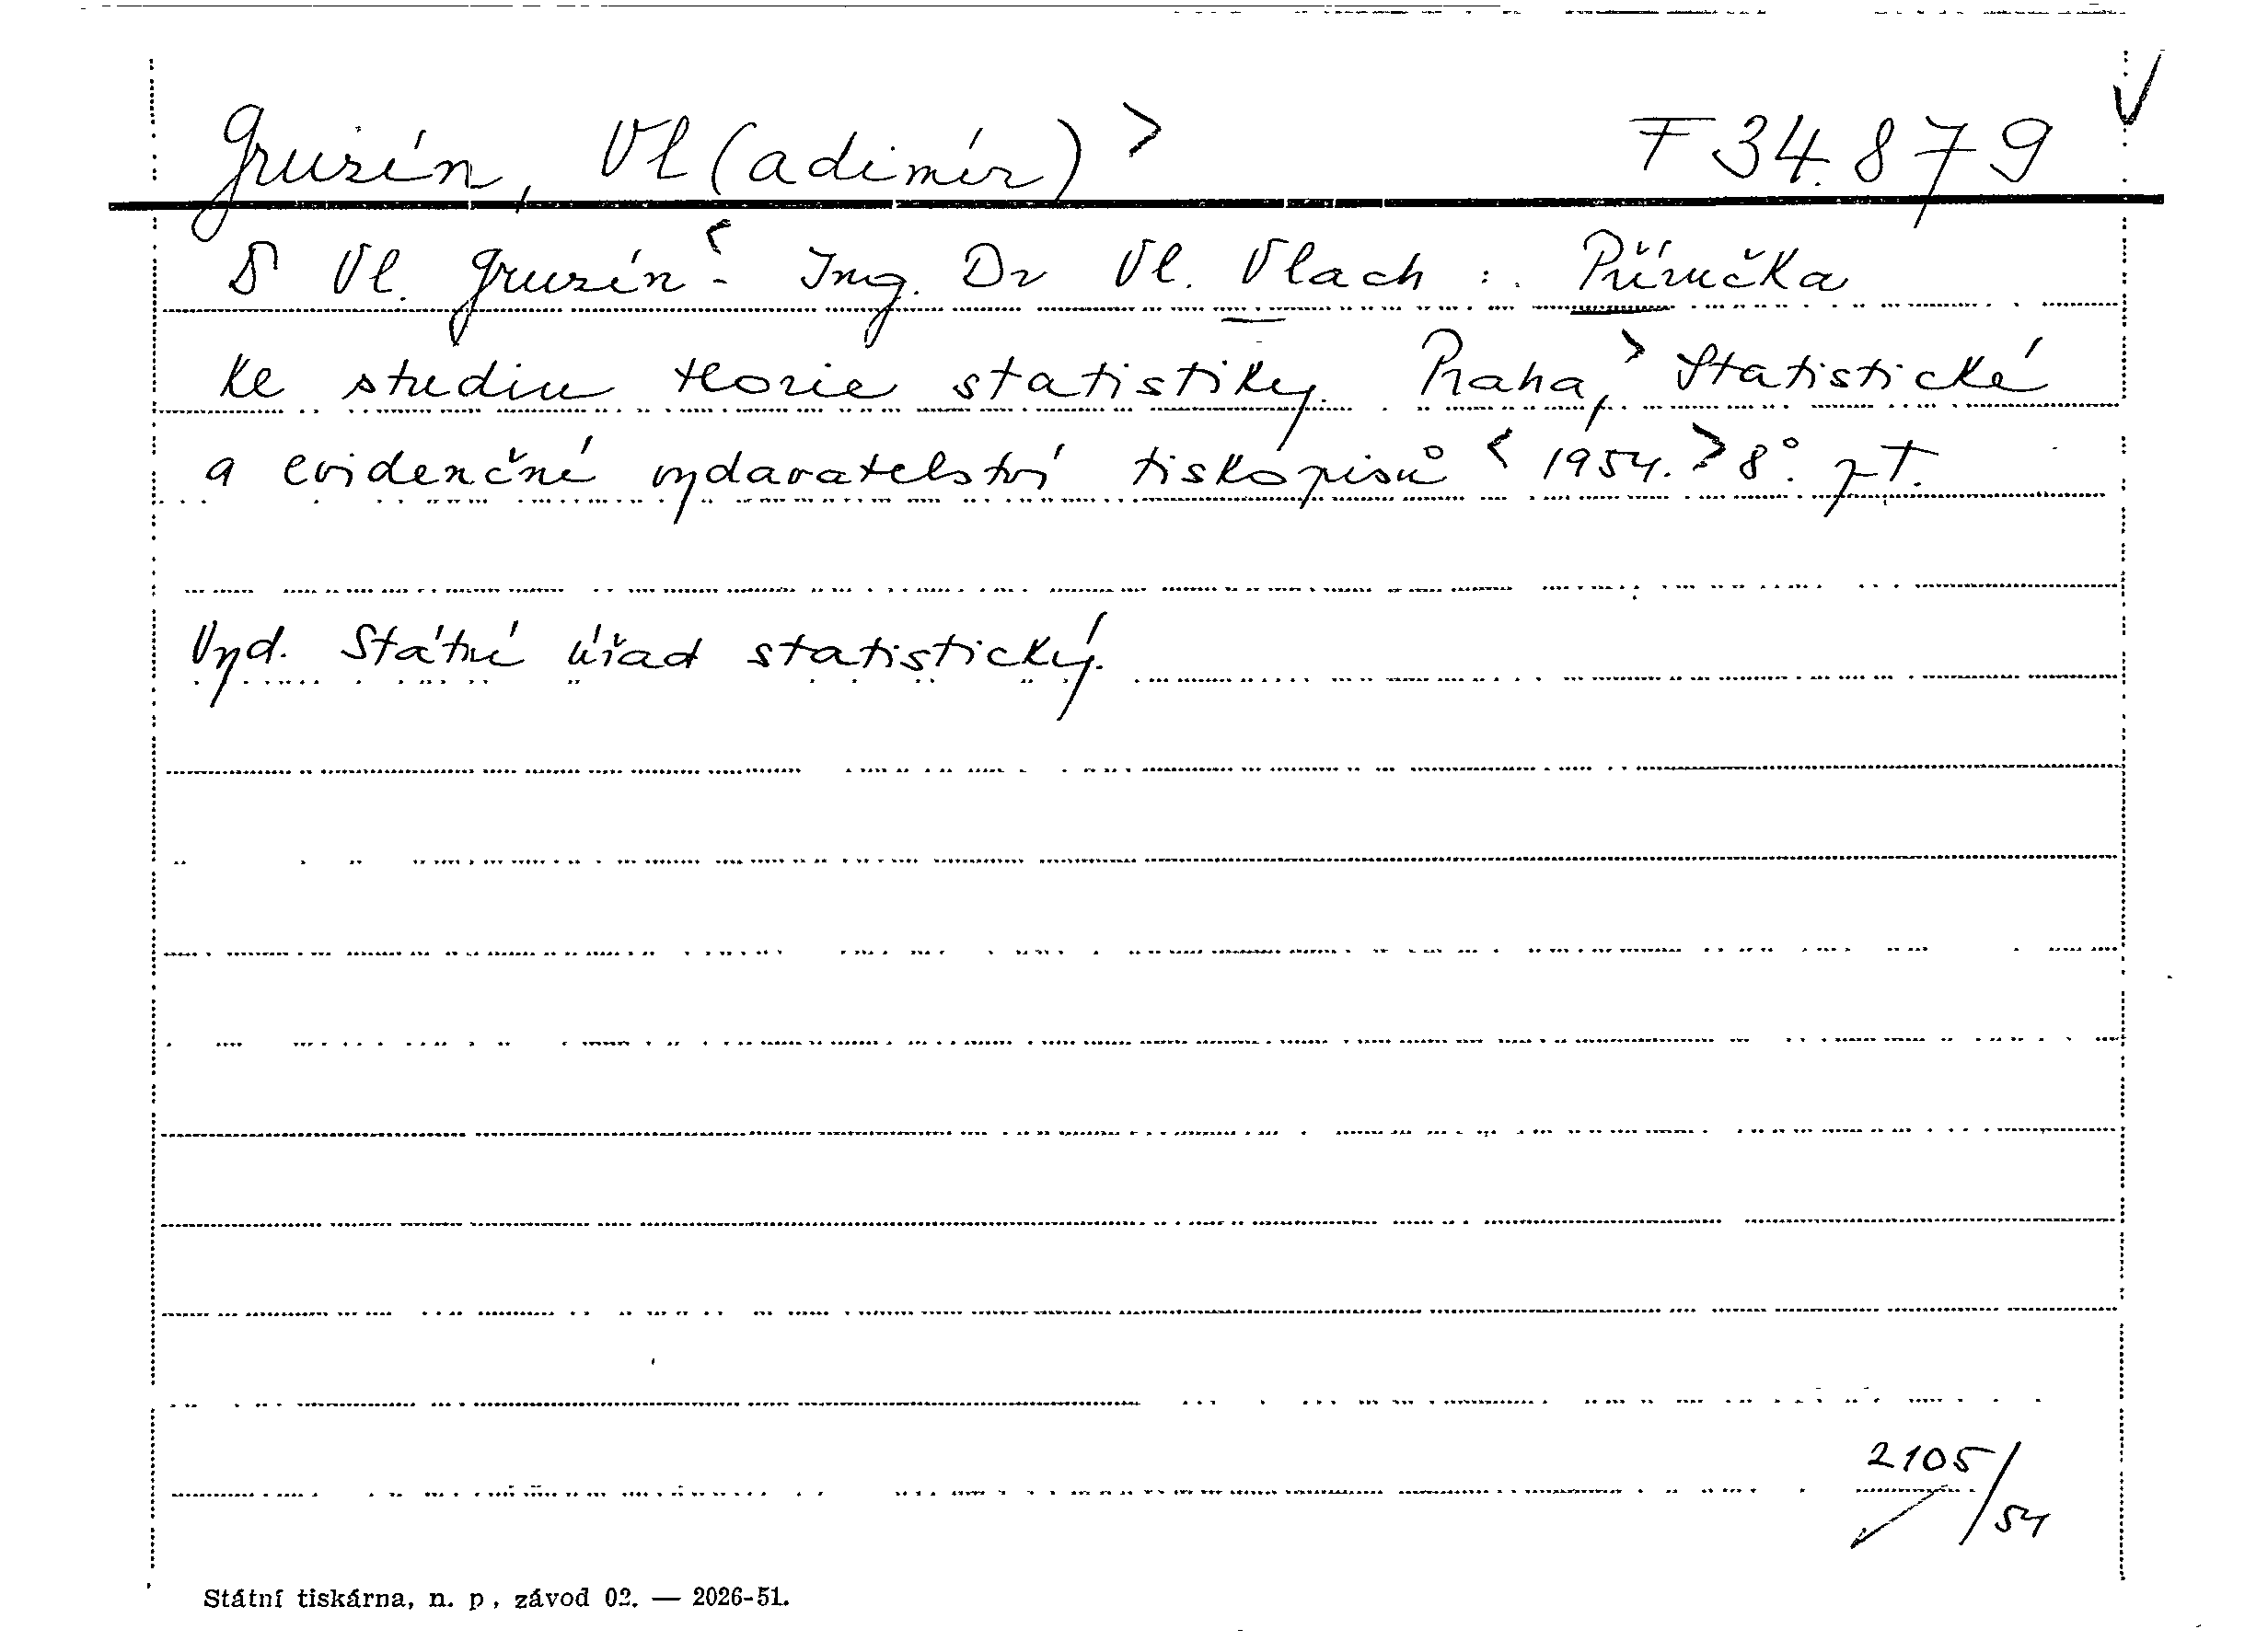 Gruzín, Vl(adimír) > F 34.879
Vl. Gruzín - Ing. Dr Vl. Vlach : Příručka
ke studiu teorie statistiky. Praha, > Statistické
a evidenční vydavatelství tiskopisů < 1954. > 8°.
Vyd. Státní úřad statistický.
2105/54
Státní tiskárna, n. p., závod 02. — 2026-51.